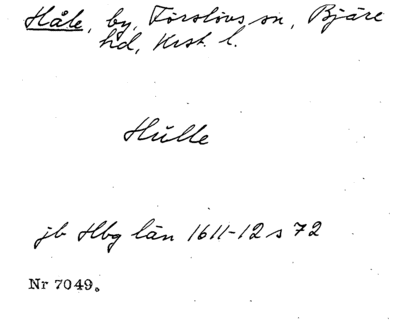 Håle, by, Förslövs sn, Bjäre
hd, Krst. l.
Hůlle
jb Hbg län 1611-12 s 72
Nr 7049.